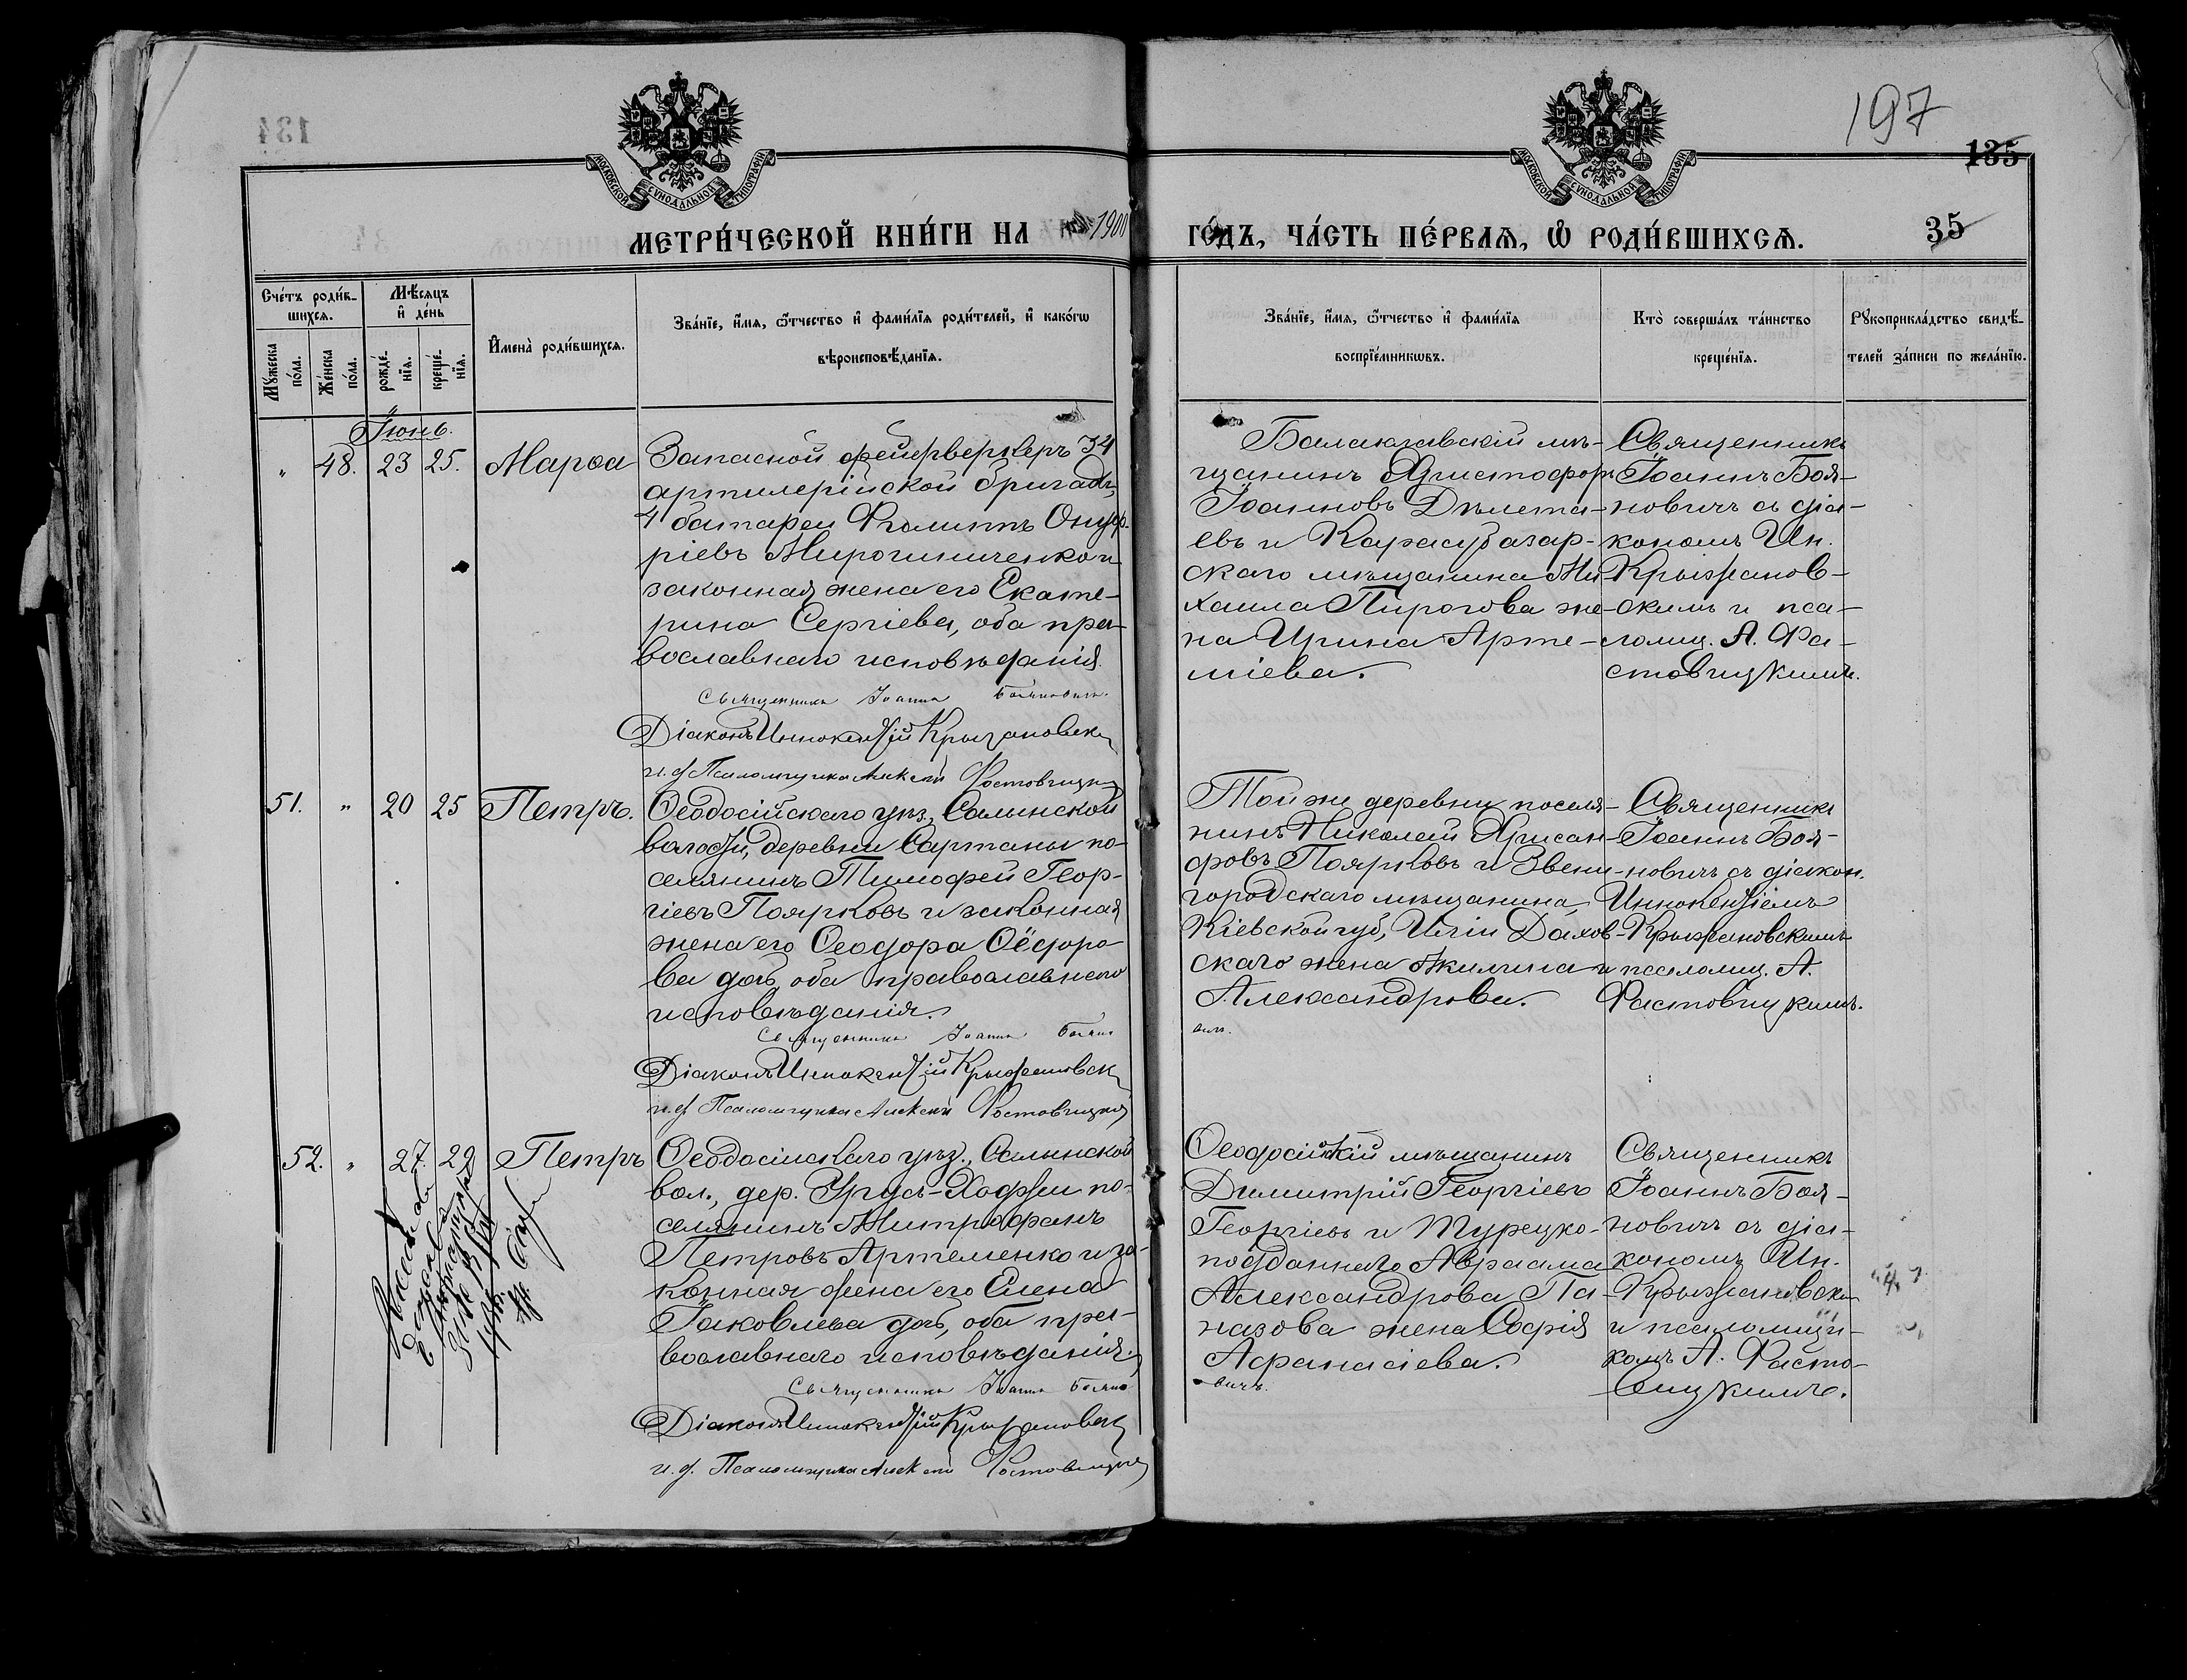 197
135
МОСКОВСКОЙ СѴНОДАЛЬНОЙ ТИПОГРАФІИ
МОСКОВСКОЙ СѴНОДАЛЬНОЙ ТИПОГРАФІИ
МЕТРИ́ЧЕСКОЙ КНИ́ГИ НА 1900
ГО́ДЪ, ЧА́СТЬ ПЕ́РВАѦ, Ѡ РОДИ́ВШИХСѦ.
35
Сче́тъ роди́в-
шихсѧ.
Мѣ́сѧцъ
и҆ де́нь
Мꙋ́жеска
по́ла.
Же́нска
по́ла.
рожде́-
нїѧ.
креще́-
нїѧ.
И҆мена̀ роди́вшихсѧ.
Зва́нїе, и҆́мѧ, ѻ҆́тчество и҆ фами́лїѧ роди́телей, и҆ како́гѡ
вѣроисповѣ́данїѧ.
Зва́нїе, и҆́мѧ, ѻ҆́тчество и҆ фами́лїѧ
воспрїе́мникѡвъ.
Кто̀ соверша́лъ та́инство
креще́нїѧ.
Рꙋкоприкла́дство свидѣ́-
телей за́писи по жела́нїю.
Іюнь.
" 48. 23 25. Марѳа
Запасной фейерверкеръ 34
артилерійской бригады,
4 батареи Филиппъ Онуф-
ріевъ Мирошниченко и
законная жена его Екате-
рина Сергіева, оба пра-
вославнаго исповѣданія.
Священникъ Іоаннъ Бояновичъ.
Діаконъ Иннокентій Крыжановскій
и. д. Псаломщика Алексѣй Фастовицкій
Балаклавскій мѣ-
щанинъ Христофоръ
Іоанновъ Делета-
евъ и Карасубазар-
скаго мѣщанина Ми-
хаила Пирогова же-
на Ирина Арте-
міева.
Священникъ
Іоаннъ Боя-
новичъ съ діа-
кономъ Ин.
Крыжанов-
скимъ и пса-
ломщ. А. Фа-
стовицкимъ.
51. " 20 25 Петръ.
Ѳеодосійскаго уѣз., Салынской
волости, деревни Сартаны по-
селянинъ Тимофей Геор-
гіевъ Поярковъ и законная
жена его Ѳеодора Ѳёдоро-
ва дочь, оба православнаго
исповѣданія.
Священникъ Іоаннъ Бояно
Діаконъ Иннокентій Крыжановскій
и. д. Псаломщика Алексѣй Фастовицкій
Той же деревни поселя-
нинъ Николай Хрисан-
фовъ Поярковъ и Звени-
городскаго мѣщанина,
Кіевской губ., Иліи Дахов-
скаго жена Акилина
Александрова.
вичъ.
Священникъ
Іоаннъ Боя-
новичъ съ діакон.
Иннокентіемъ
Крыжановскимъ
и псаломщ. А.
Фастовицкимъ.
52. " 27. 29 Петръ
Ѳеодосійскаго уѣз., Салынской
вол., дер. Урусъ-Ходжи по-
селянинъ Митрофанъ
Петровъ Артеменко и за-
конная жена его Елена
Іаковлева дочь, оба пра-
вославнаго исповѣданія.
Священникъ Іоаннъ Бояно
Діаконъ Иннокентій Крыжановскій
и. д. Псаломщика Алексѣй Фастовицкій
Ѳеодосійскій мѣщанинъ
Димитрій Георгіевъ
Георгіевъ и Турецко-
подданнаго Авраама
Александрова Па-
назова жена Софія
Афанасіева.
вичъ.
Священникъ
Іоаннъ Боя-
новичъ съ діа-
кономъ Ин.
Крыжановским
и псаломщи-
комъ А. Фасто-
вицкимъ.